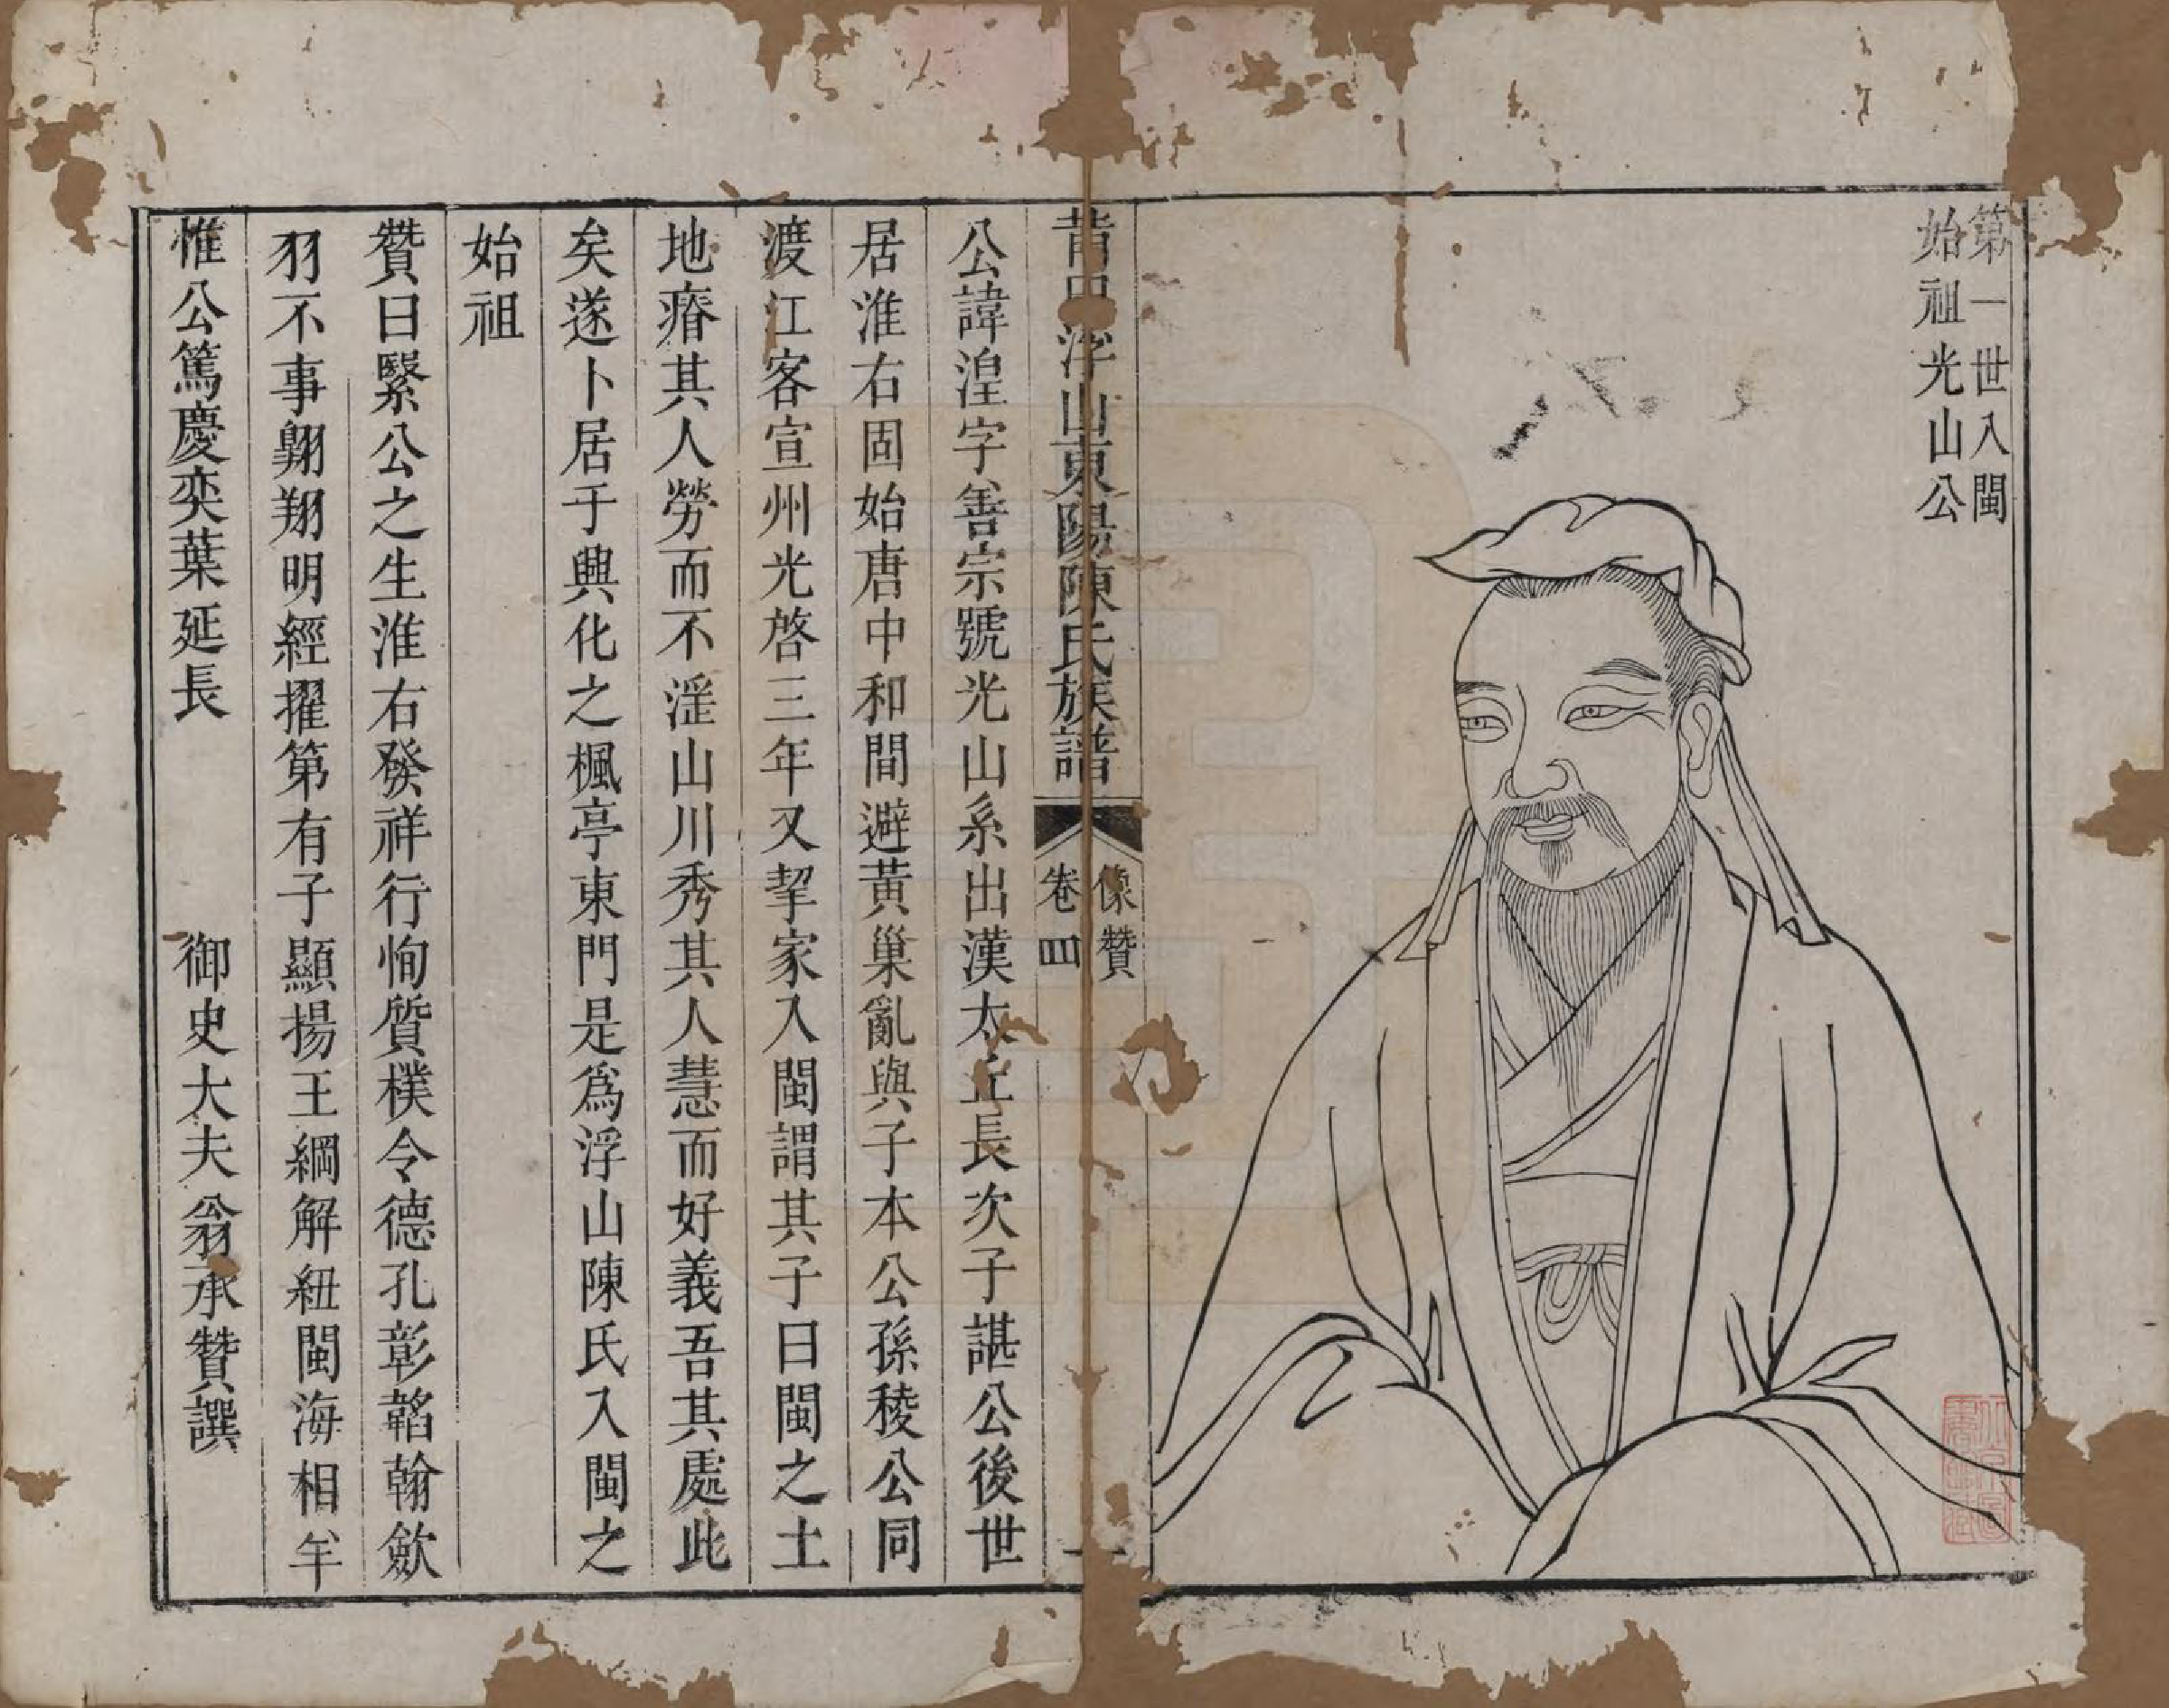 第一世入閩
始祖光山公
莆田浮山東陽陳氏族譜
像贊
卷四
一
公諱湟字善宗號光山系出漢太丘長次子諶公後世
居淮右固始唐中和間避黃巢亂與子本公孫稜公同
渡江客宣州光啓三年又挈家入閩謂其子曰閩之土
地瘠其人勞而不淫山川秀其人慧而好義吾其處此
矣遂卜居于興化之楓亭東門是為浮山陳氏入閩之
始祖
贊曰繄公之生淮右發祥行恂質樸令德孔彰韜翰歛
羽不事翺翔明經擢第有子顯揚王綱解紐閩海相羊
惟公篤慶奕葉延長
御史大夫翁承贊譔